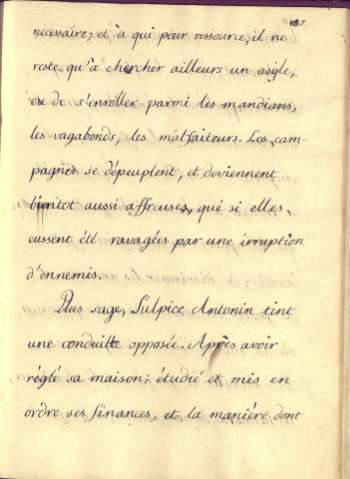 187
necessaire; et à qui pour ressource, il ne
reste qu'à chercher ailleurs un asyle,
ou de s'enroller parmi les mandians,
les vagabonds, les malfaiteurs. Les cam-
pagnes se dépeuplent, et deviennent
bientot aussi affreuses, que si elles
eussent été ravagées par une irruption
d'ennemis.
Plus sage, Sulpice Antonin tint
une conduitte opposée. Après avoir
réglé sa maison; étudié et mis en
ordre ses finances, et la maniére dont